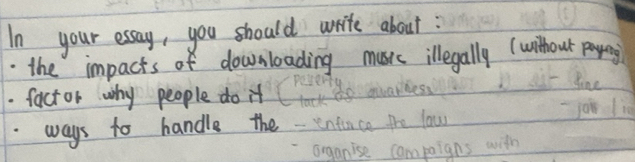 In your essay, you should write about :
• the impacts of downloading music illegally (without paying)
• factor why people do it ( poverty
lack of awareness
- fine
- jail
• ways to handle the - enforce the law
- organise campaigns with